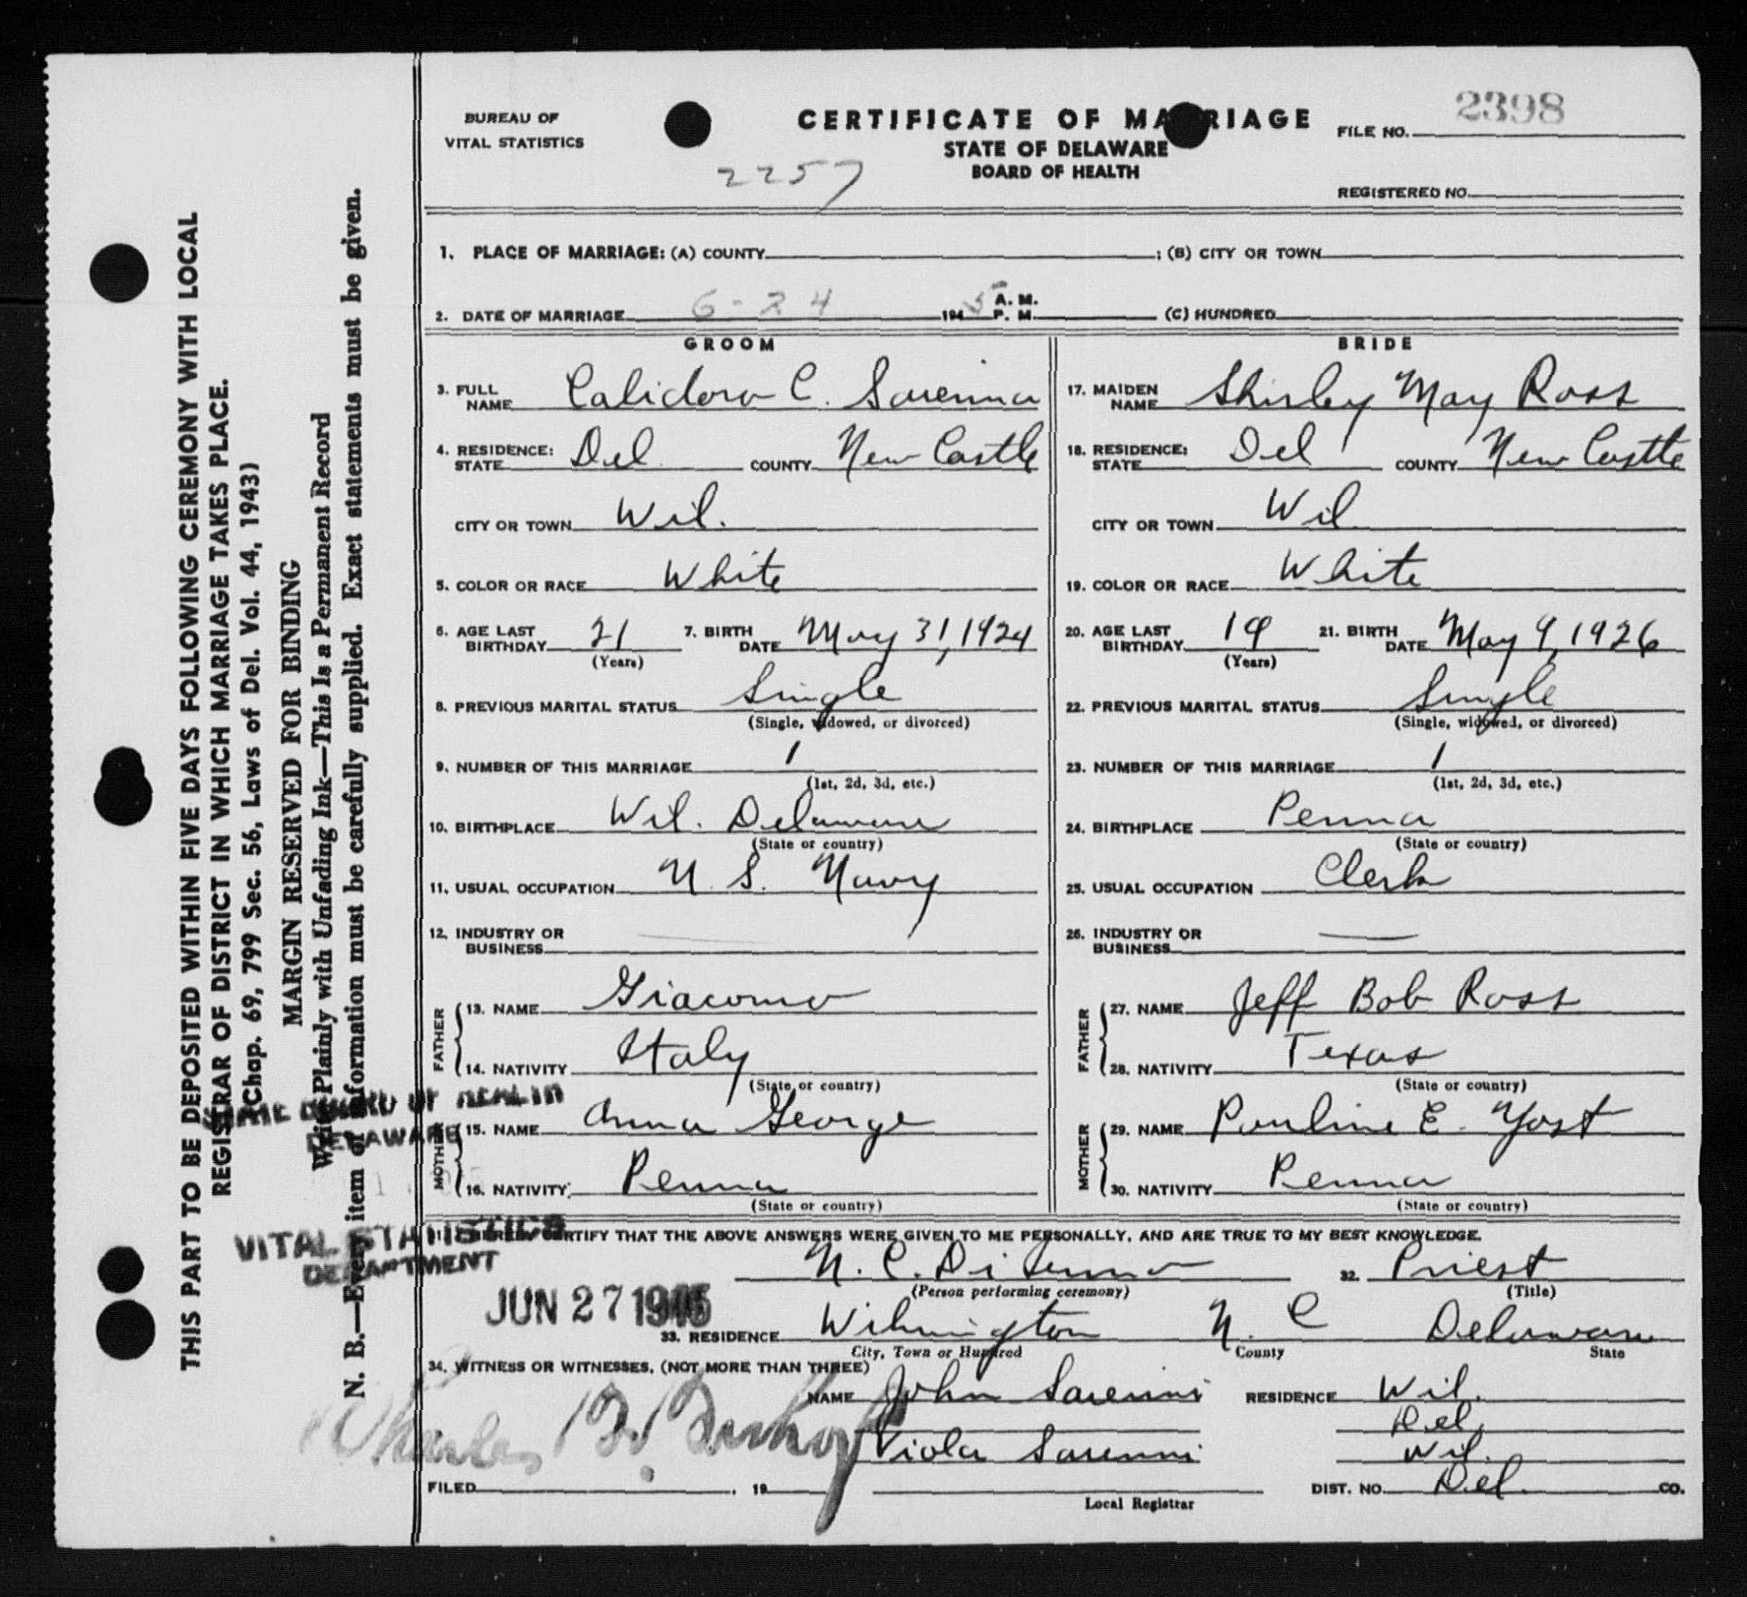 BUREAU OF
VITAL STATISTICS
CERTIFICATE OF MARRIAGE
STATE OF DELAWARE
BOARD OF HEALTH
2257
FILE NO. 2398
REGISTERED NO.
1. PLACE OF MARRIAGE: (A) COUNTY ; (B) CITY OR TOWN
2. DATE OF MARRIAGE 6-24 1945 A. M. P. M. (C) HUNDRED
GROOM
3. FULL NAME C.
4. RESIDENCE: STATE Del. COUNTY New Castle
CITY OR TOWN Wil.
5. COLOR OR RACE White
6. AGE LAST BIRTHDAY 21 (Years) 7. BIRTH DATE May 31, 1924
8. PREVIOUS MARITAL STATUS Single
(Single, widowed, or divorced)
9. NUMBER OF THIS MARRIAGE 1
(1st, 2d, 3d, etc.)
10. BIRTHPLACE Wil. Delaware
(State or country)
11. USUAL OCCUPATION U. S. Navy
12. INDUSTRY OR BUSINESS —
FATHER
13. NAME Giacomo
14. NATIVITY Italy
(State or country)
MOTHER
15. NAME Anna George
16. NATIVITY Penna
(State or country)
BRIDE
17. MAIDEN NAME Shirley May Ross
18. RESIDENCE: STATE Del COUNTY New Castle
CITY OR TOWN Wil.
19. COLOR OR RACE White
20. AGE LAST BIRTHDAY 19 (Years) 21. BIRTH DATE May 9, 1926
22. PREVIOUS MARITAL STATUS Single
(Single, widowed, or divorced)
23. NUMBER OF THIS MARRIAGE 1
(1st, 2d, 3d, etc.)
24. BIRTHPLACE Penna
(State or country)
25. USUAL OCCUPATION Clerk
26. INDUSTRY OR BUSINESS —
FATHER
27. NAME Jeff Bob Ross
28. NATIVITY Texas
(State or country)
MOTHER
29. NAME Pauline E. Yost
30. NATIVITY Penna
(State or country)
31. I HEREBY CERTIFY THAT THE ABOVE ANSWERS WERE GIVEN TO ME PERSONALLY, AND ARE TRUE TO MY BEST KNOWLEDGE.
N. C. 32. Priest
(Person performing ceremony) (Title)
33. RESIDENCE Wilmington N. C Delaware
City, Town or Hundred County State
34. WITNESS OR WITNESSES. (NOT MORE THAN THREE)
NAME John RESIDENCE Wil.
Del.
Viola Wil.
FILED , 19 DIST. NO. Del. CO.
Local Registrar
Charles
STATE BOARD OF HEALTH
DELAWARE
VITAL STATISTICS
DEPARTMENT
JUN 27 1945
THIS PART TO BE DEPOSITED WITHIN FIVE DAYS FOLLOWING CEREMONY WITH LOCAL
REGISTRAR OF DISTRICT IN WHICH MARRIAGE TAKES PLACE.
(Chap. 69, 799 Sec. 56, Laws of Del. Vol. 44, 1943)
MARGIN RESERVED FOR BINDING
Write Plainly with Unfading Ink—This Is a Permanent Record
N. B.—Every item of information must be carefully supplied. Exact statements must be given.